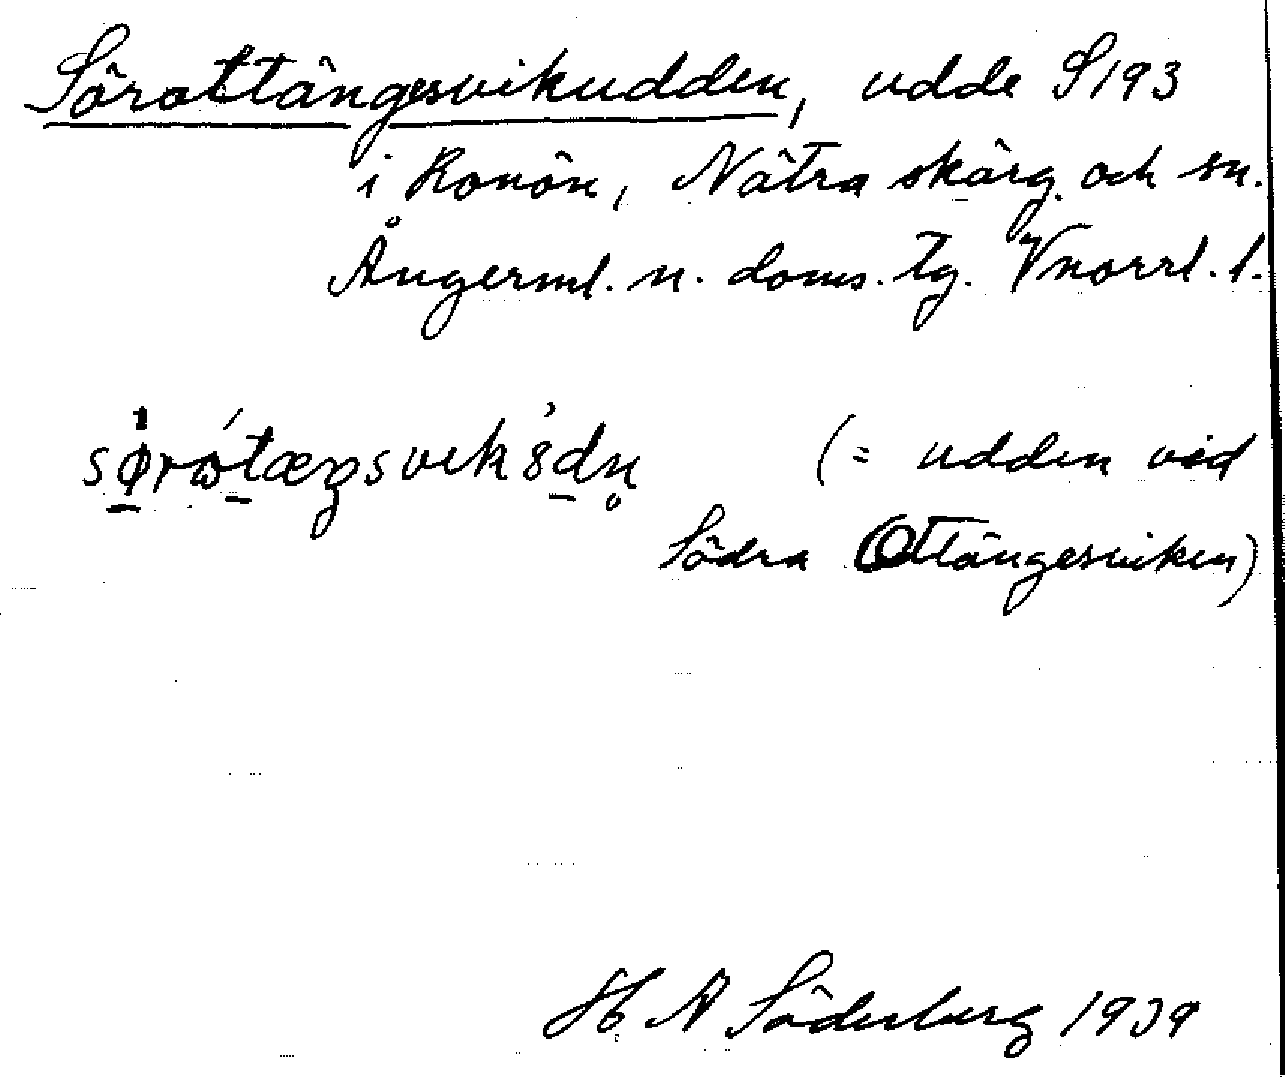 Sörottängesvikudden, udde S193
i Ronön, Nätra skärg. och sn.
Ångerml. n. doms. tg. Vnorrl. l.
(= udden vid
Södra Ottängesviken)
H A Söderberg 1939